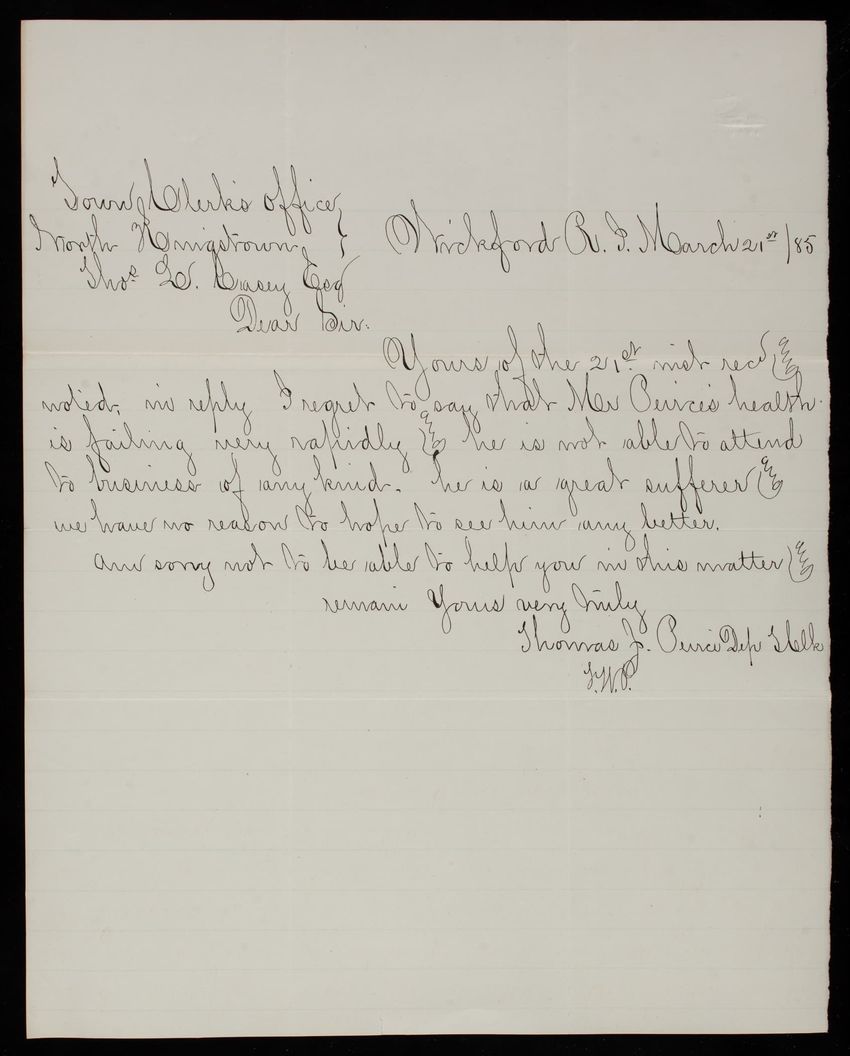 Town Clerk's office
North Kingstown } Wickford R. I. March 21st /85
Thos L. Casey Esq
Dear Sir:
Yours of the 21st inst recd &
noted, in reply I regret to say that Mr Peirce's health
is failing very rapidly & he is not able to attend
to business of any kind. he is a great sufferer &
we have no reason to hope to see him any better.
Am sorry not to be able to help you in this matter &
remain Yours very truly
Thomas J. Peirce Dep T Clk